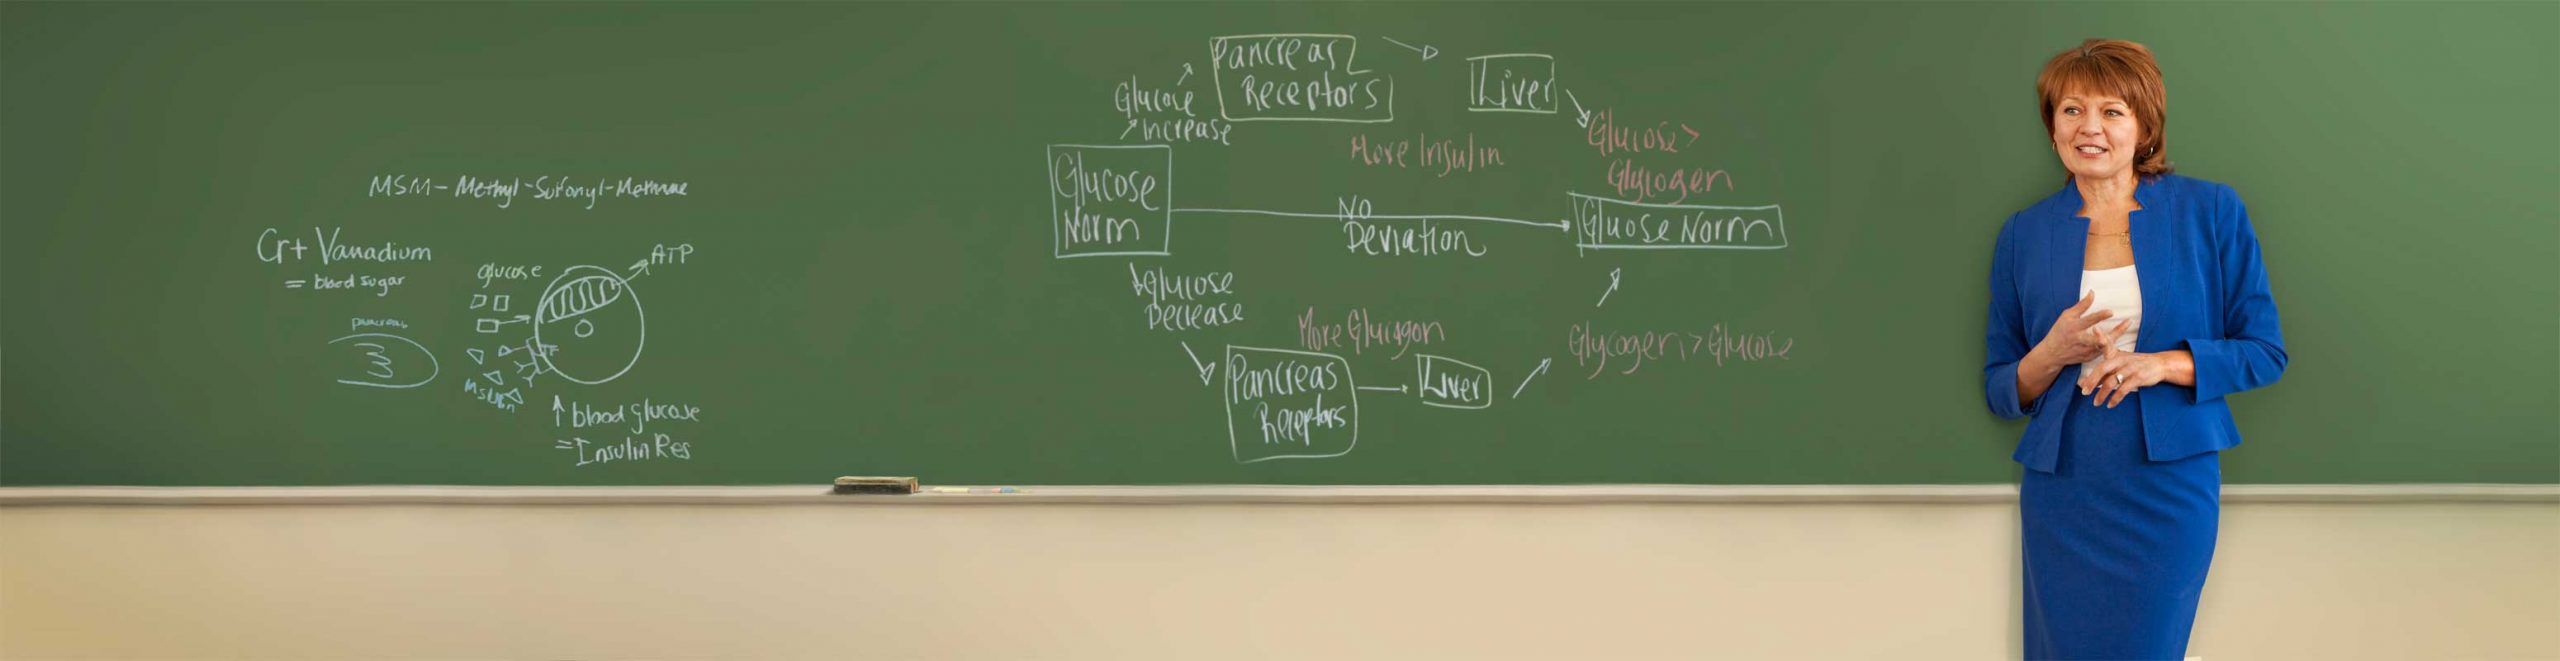 MSM - Methyl-Sulfonyl-Methane
Cr + Vanadium
= blood sugar
glucose
ATP
pancreas
↑ blood glucose
= Insulin Res
Glucose
Norm
Glucose
Increase
Pancreas
Receptors
Liver
More Insulin
Glucose >
Glycogen
No
Deviation
Gluose Norm
Glucose
Decrease
More Glucagon
Pancreas
Receptors
Liver
Glycogen > Glucose